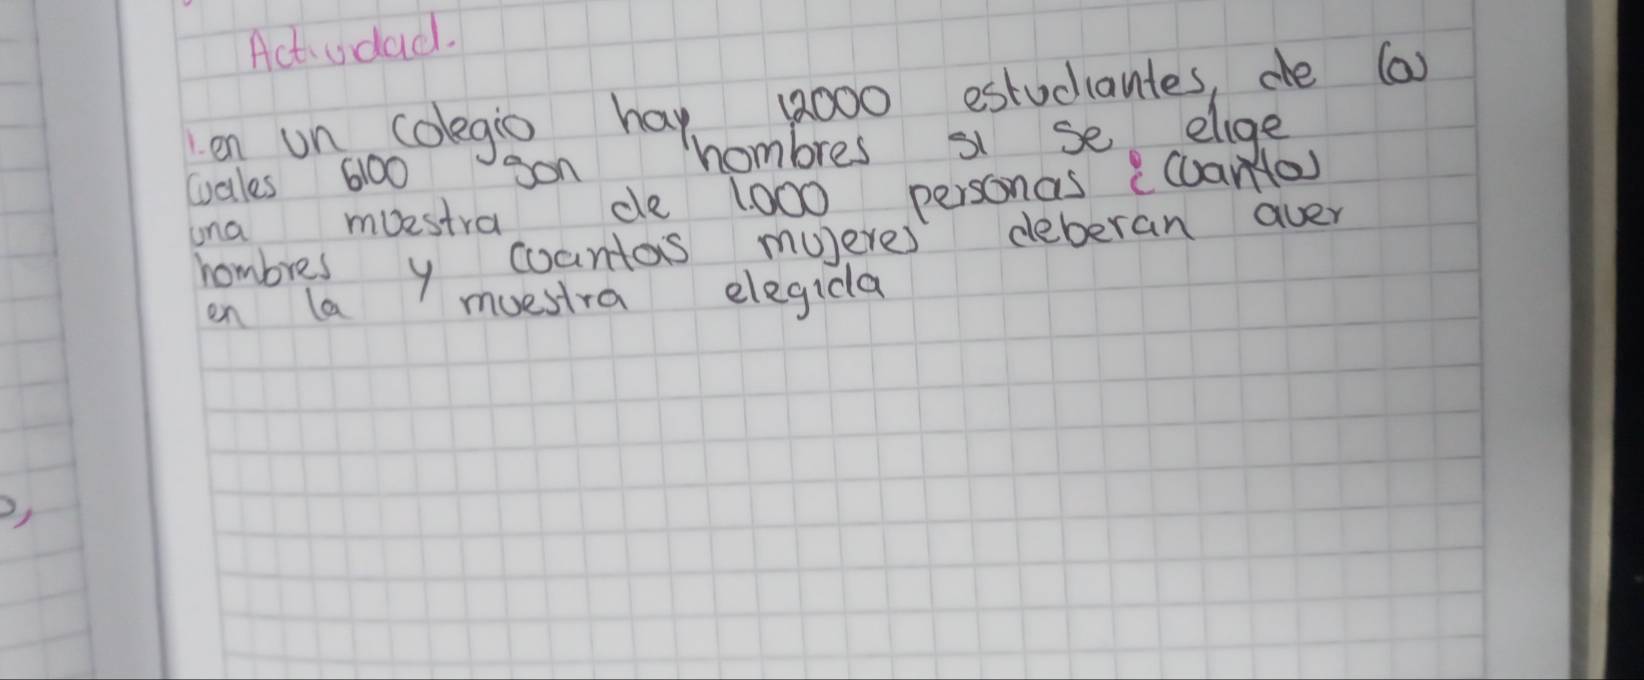 Actividad.
1. en un colegio hay 12000 estudiantes, de los
cuales 6100 son hombres si se elige
una muestra de 1.000 personas ¿cuantos
hombres y cuantas mujeres deberan aver
en la muestra elegida